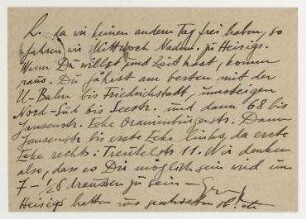 L. da wir keinen andern Tag frei haben, so
fahren wir Mittwoch Nachm. zu Heisigs.
Wenn Du willst und Zeit hast, komm
raus. Du fährst am besten mit der
U-Bahn bis Friedrichstadt, umsteigen
Nord-Süd bis Seestr. und dann 68 bis
Ecke Dann
bis erste Ecke links, da erste
Ecke rechts: 11. Wir denken
also, dass es Dir möglich sein wird um
7 - draussen zu sein -
Heisigs hatten uns